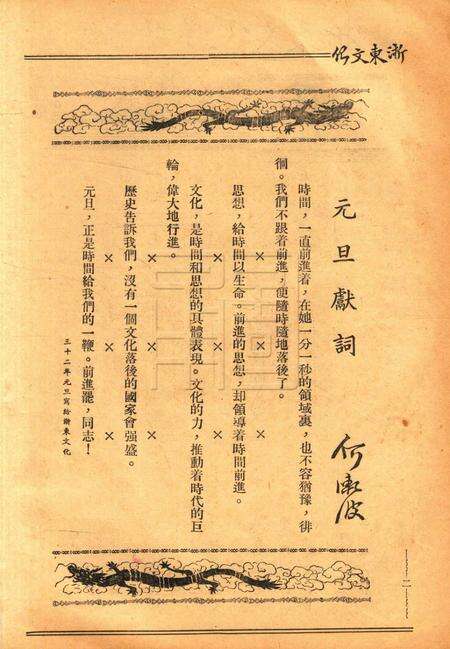 浙東文化
元旦獻詞
何漱波
時間，一直前進着，在她一分一秒的領域裏，也不容猶豫，徘
徊。我們不跟着前進，便隨時隨地落後了。
×　×　×
思想，給時間以生命。前進的思想，却領導着時間前進。
×　×　×
文化，是時間和思想的具體表現。文化的力，推動着時代的巨
輪，偉大地行進。
×　×　×
歷史告訴我們，沒有一個文化落後的國家會强盛。
×　×　×
元旦，正是時間給我們的一鞭。前進罷，同志！
三十二年元旦寫給浙東文化
二